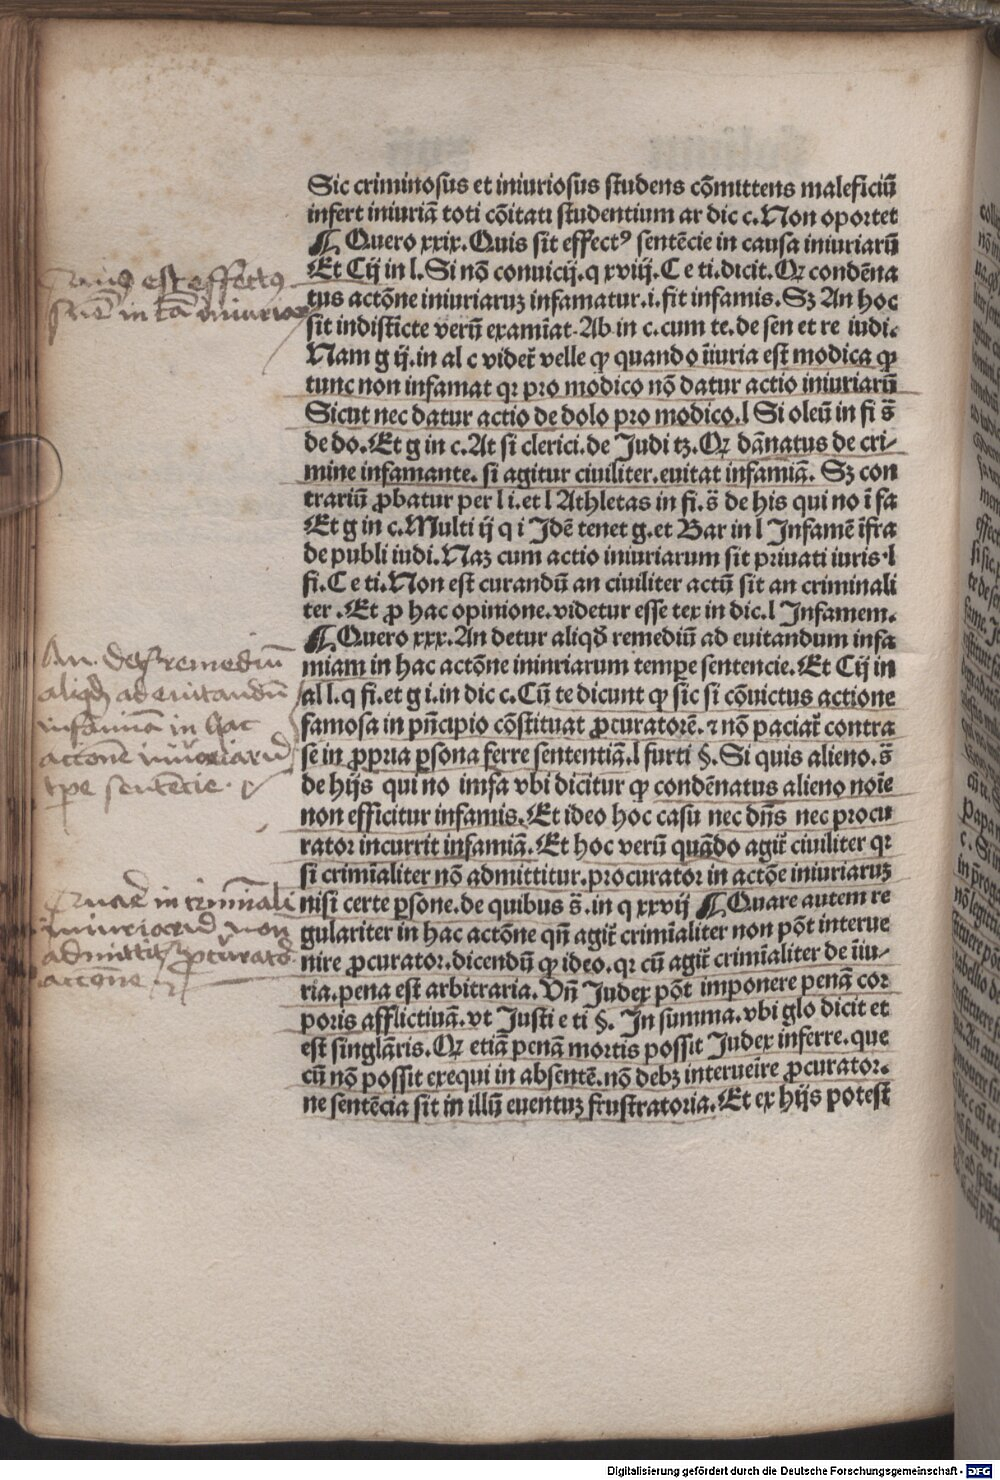 Sic criminosus et iniuriosus studens cōmittens maleficiū
infert iniuriā toti cōitati studentium ar dic c. Non oportet
¶ Quero xxix. Quis sit effectꝰ sentēcie in causa iniuriarū
Et Cij in l. Si nō conuicij. q xviij. C e ti. dicit. Qꝛ condēna
tus actōne iniuriaruꝫ infamatur. i. fit infamis. Sꝫ An hoc
sit indisticte verū examīat. Ab in c. cum te. de sen et re iudi.
Nam g ij. in al c videt᷑ velle ꝙ quando īiuria est modica ꝙ
tunc non infamat qꝛ pro modico nō datur actio iniuriarū
Sicut nec datur actio de dolo pro modico. l Si oleū in fi s̄
de do. Et g in c. At si clerici. de Judi tꝫ. Qꝛ dānatus de cri-
mine infamante. si agitur ciuiliter. euitat infamiā. Sꝫ con
trariū ꝓbatur per l i. et l Athletas in fi. s̄ de his qui no ī fa
Et g in c. Multi ij q i Jdē tenet g. et Bar in l Infamē īfra
de publi iudi. Naꝫ cum actio iniuriarum sit priuati iuris. l
fi. C e ti. Non est curandū an ciuiliter actū sit an criminali
ter. Et ꝓ hac opinione. videtur esse tex in dic. l Infamem.
¶ Quero xxx. An detur aliqđ remediū ad euitandum infa
miam in hac actōne ininriarum tempe sentencie. Et Cij in
al l. q fi. et g i. in dic c. Cū te dicunt ꝙ sic si cōuictus actione
famosa in pn̄cipio cōstituat ꝓcuratorē. ⁊ nō paciat᷑ contra
se in ꝓpria ꝑsona ferre sententiā. l furti §. Si quis alieno. s̄
de hijs qui no imfa vbi dicitur ꝙ condēnatus alieno noīe
non efficitur infamis. Et ideo hoc casu nec dn̄s nec procu
rator incurrit infamiā. Et hoc verū quādo agit᷑ ciuiliter qꝛ
si crimīaliter nō admittitur. procurator in actōe iniuriaruꝫ
nisi certe ꝑsone. de quibus s̄. in q xxvij ¶ Quare autem re
gulariter in hac actōne qn̄ agit᷑ crimīaliter non pōt interue
nire ꝓcurator. dicendū ꝙ ideo. qꝛ cū agit᷑ crimīaliter de īiu-
ria. pena est arbitraria. Vn̄ Judex pōt imponere penā cor
poris afflictiuā. vt Justi e ti §. In summa. vbi glo dicit et
est singlāris. Qꝛ etiā penā mortis possit Judex inferre. que
cū nō possit exequi in absentē. nō debꝫ interueīre ꝓcurator.
ne sentēcia sit in illū euentuꝫ frustratoria. Et ex hijs potest
est effectus
An. det᷑ remediū
aliqđ ad euitandū
infamiā in hac
actōne iniuriarū
tꝑe sentēcie.
Quare in criminali
iniuriarū non
admittit᷑ ꝓcurator
actōne
Digitalisierung gefördert durch die Deutsche Forschungsgemeinschaft - DFG